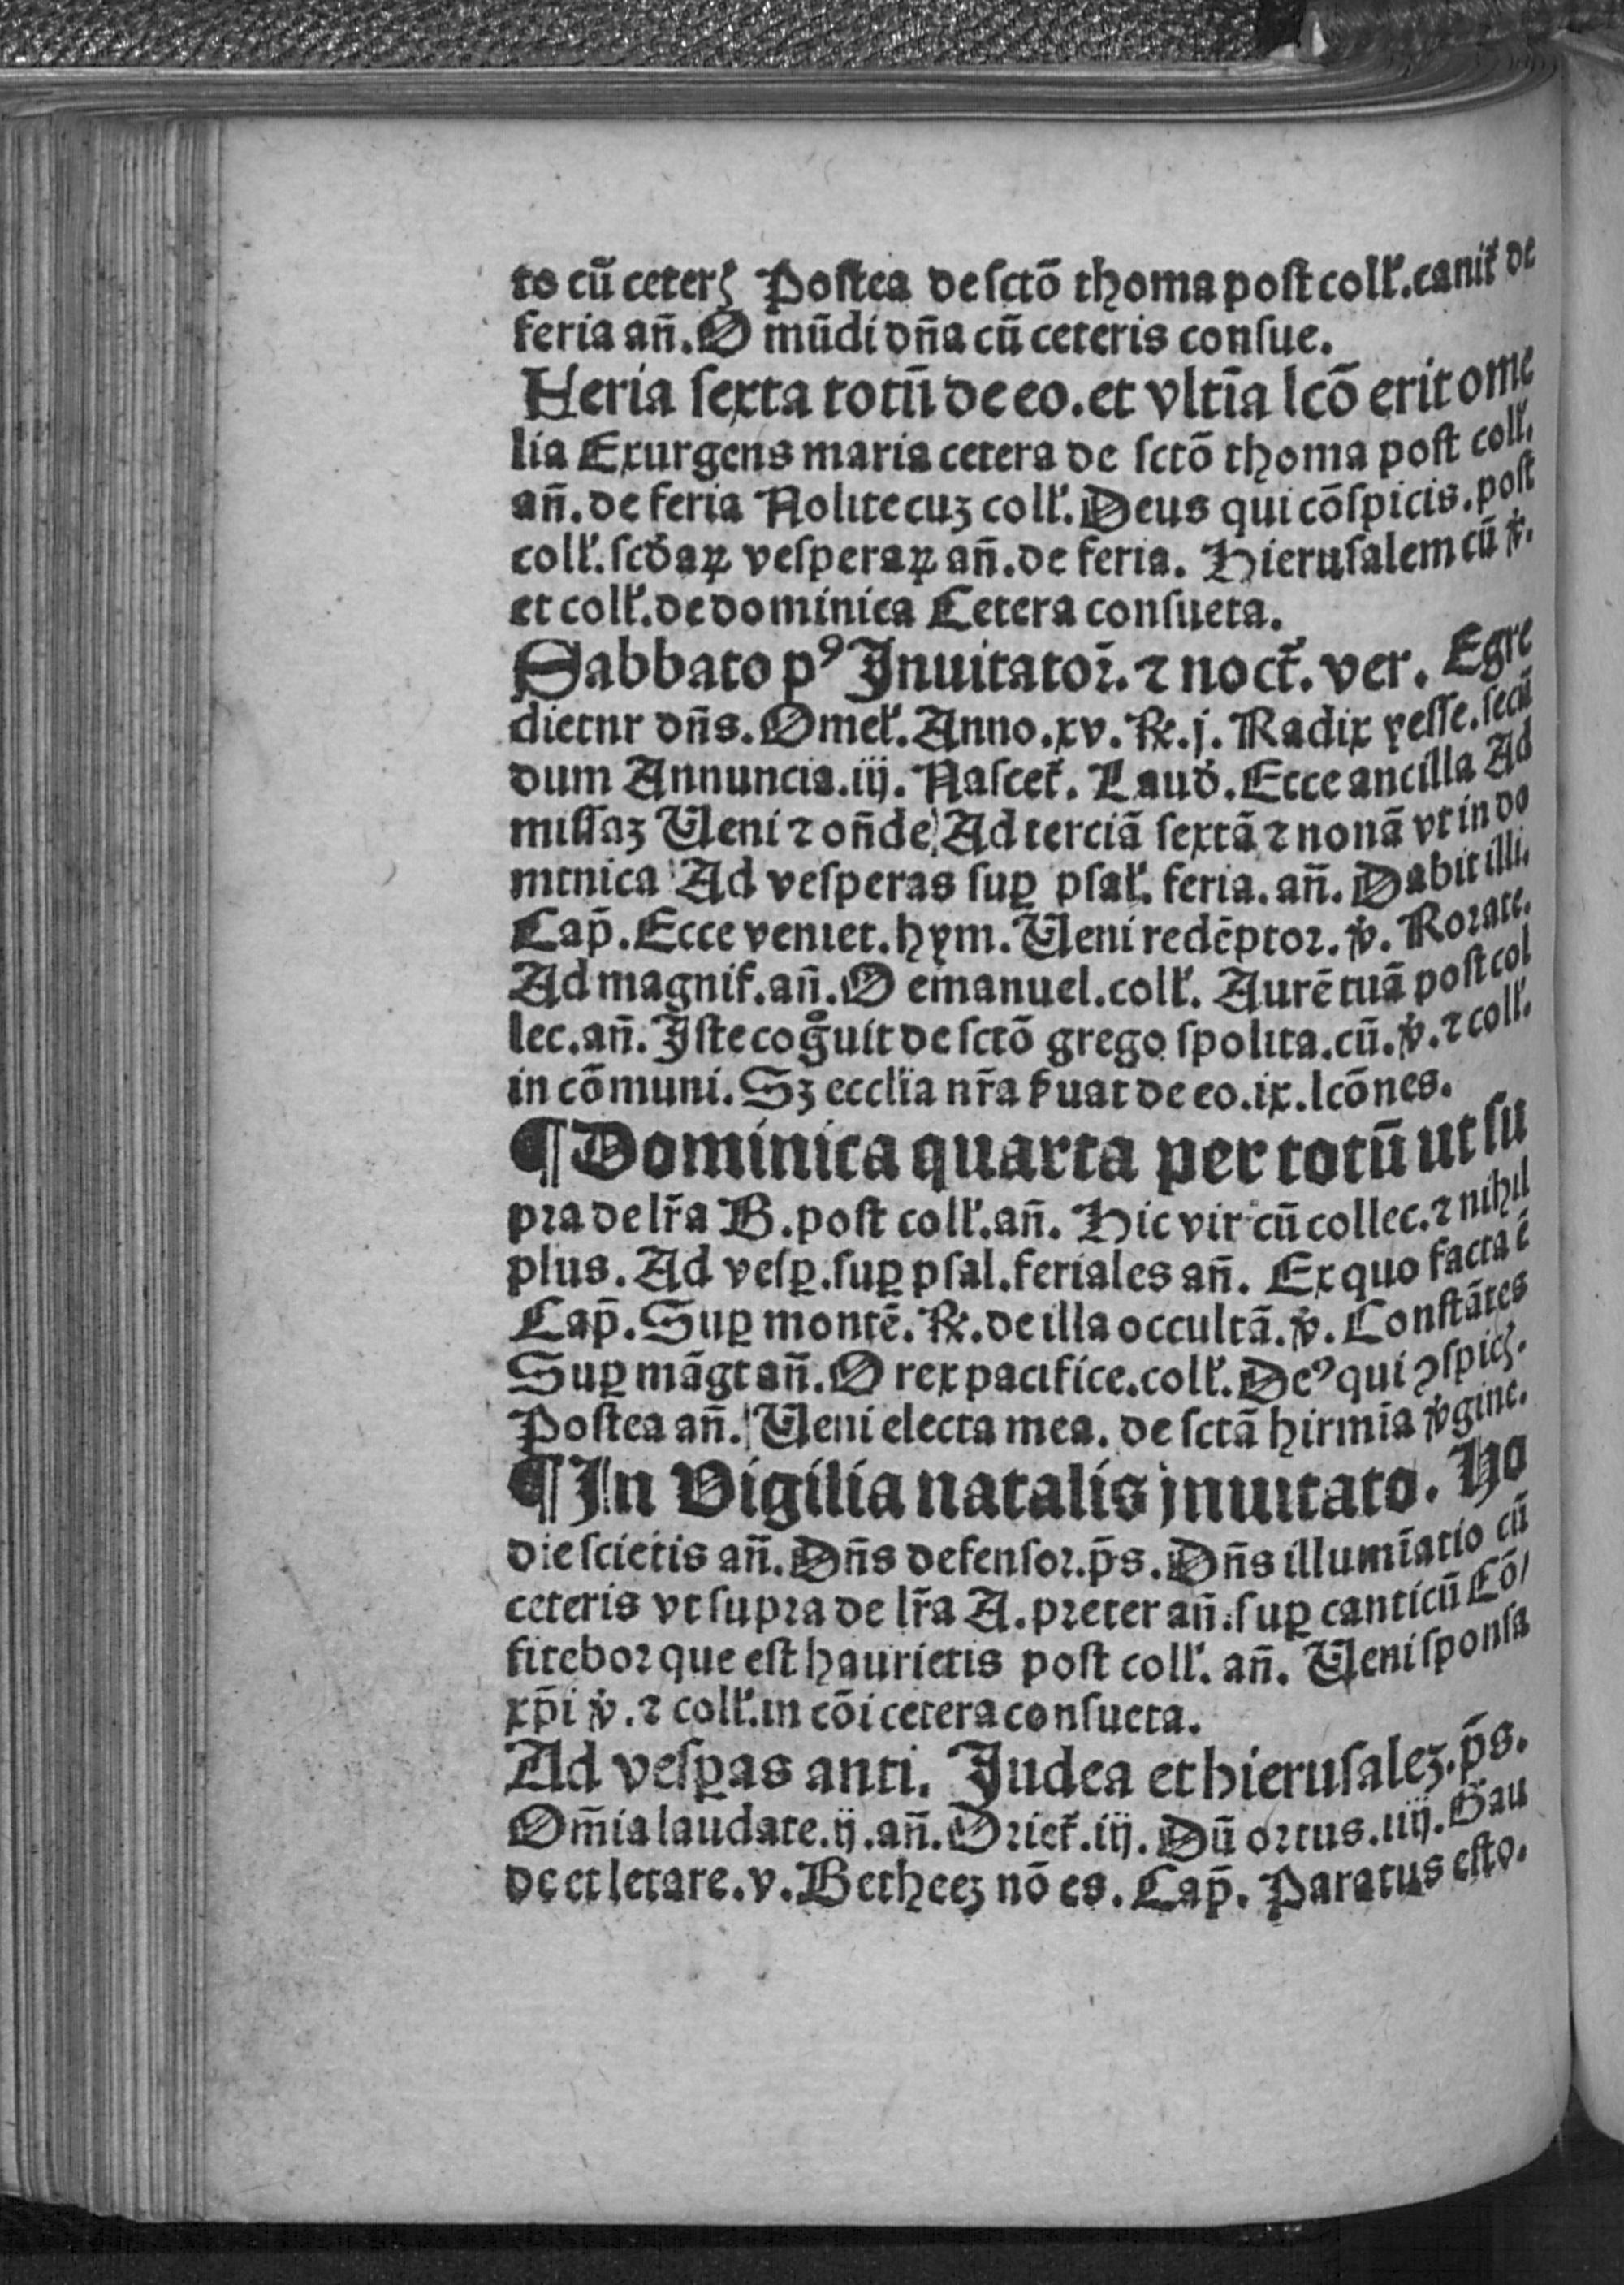 to cū ceterꝭ Postea de sctō thoma post coll̕. canit̕ de
feria an̄. O mūdi dn̄a cū ceteris consue.
Feria sexta totū de eo. et vltīa lcō erit ome
lia Exurgens maria cetera de sctō thoma post coll̕.
an̄. de feria Nolite cuȝ coll̕. Deus qui cōspicis. post
coll̕. scd̕aꝝ vesperaꝝ an̄. de feria. Hierusalem cū ℣.
et coll̕. de dominica Cetera consueta.
Sabbato pꝰ Inuitator̄. ⁊ noct̕. ver. Egre
dietur dn̄s. Omel̕. Anno. xv. ℟. j. Radix yesse. secū
dum Annuncia. iij. Nascet̕. Laud̕. Ecce ancilla Ad
missaȝ Ueni ⁊ on̄de Ad terciā sextā ⁊ nonā vt in do
minica Ad vesperas suꝑ psal̕. feria. an̄. Dabit illi.
Cap̄. Ecce veniet. hym. Ueni redēptor. ℣. Rorate.
Ad magnif̕. an̄. O emanuel. coll̕. Aurē tuā post col
lec. an̄. Iste cog̊uit de sctō grego spolita. cū. ℣. ⁊ coll̕.
in cōmuni. Sȝ ecclīa nr̄a ẜuat de eo. ix. lcōnes.
¶ Dominica quarta per totū ut su
pra de lr̄a B. post coll̕. an̄. Hic vir cū collec. ⁊ nihil
plus. Ad vesꝑ. suꝑ psal. feriales an̄. Ex quo facta ē
Cap̄. Suꝑ montē. ℟. de illa occultā. ℣. Constātes
Suꝑ māgt an̄. O rex pacifice. coll̕. Deꝰ qui ꝯspicꝭ.
Postea an̄. Ueni electa mea. de sctā hirmia ꝟgine.
¶ In Vigilia natalis inuitato. Ho
die scietis an̄. Dn̄s defensor. p̄s. Dn̄s illumīatio cū
ceteris vt supra de lr̄a A. preter an̄. suꝑ canticū Cō/
fitebor que est haurietis post coll̕. an̄. Ueni sponsa
xp̄i ℣. ⁊ coll̕. in cōi cetera consueta.
Ad vesꝑas anti. Iudea et hierusaleȝ. p̄s.
Om̄ia laudate. ij. an̄. Oriet̕. iij. Dū ortus. iiij. Gau
de et letare. v. Betheeȝ nō es. Cap̄. Paratus esto.